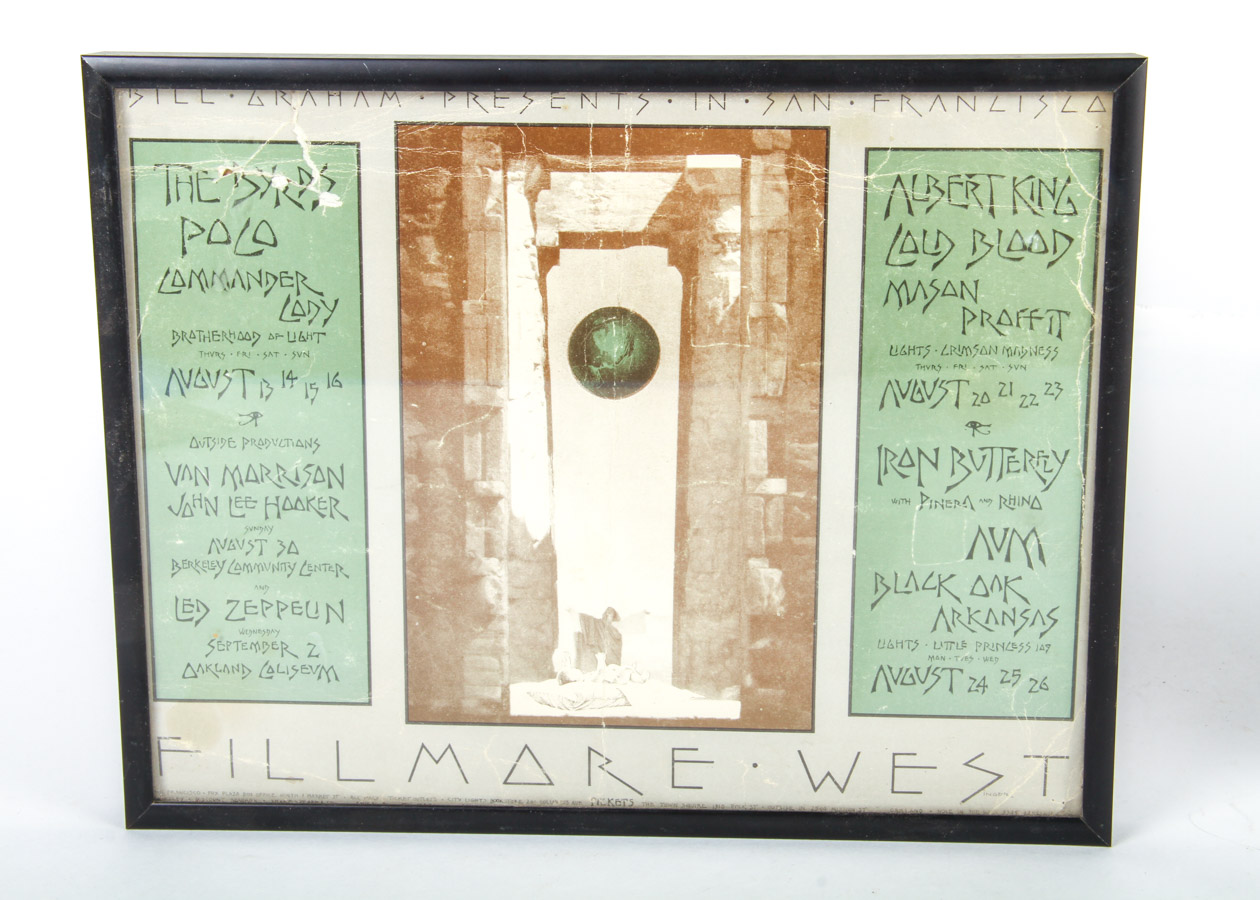 BILL · GRAHAM · PRESENTS · IN · SAN · FRANCISCO
THE BYRDS
POCO
COMMANDER
CODY
BROTHERHOOD OF LIGHT
THURS · FRI · SAT · SUN
AUGUST 13 14 15 16
OUTSIDE PRODUCTIONS
VAN MORRISON
JOHN LEE HOOKER
SUNDAY
AUGUST 30
BERKELEY COMMUNITY CENTER
AND
LED ZEPPELIN
WEDNESDAY
SEPTEMBER 2
OAKLAND COLISEUM
ALBERT KING
COLD BLOOD
MASON
PROFFIT
LIGHTS · CRIMSON MADNESS
THURS · FRI · SAT · SUN
AUGUST 20 21 22 23
IRON BUTTERFLY
WITH PINERA AND RHINO
AUM
BLACK OAK
ARKANSAS
LIGHTS · LITTLE PRINCESS 109
MON · TUES · WED
AUGUST 24 25 26
FILLMORE · WEST
TICKETS